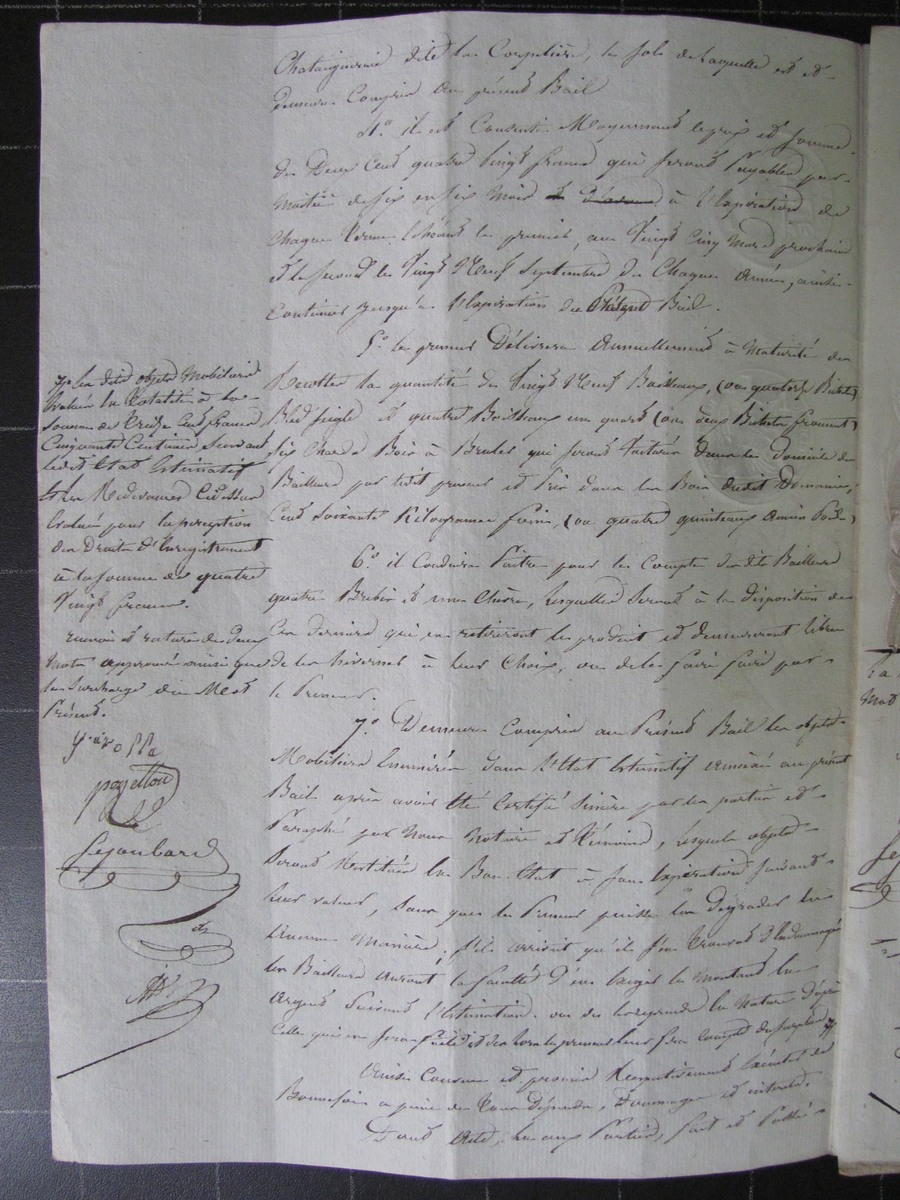 Chataigneraie dite la Coupelière, le sol de laquelle est et
demeure Compris au présent Bail
4.° il est Consenti Moyennant le prix et somme
de Deux Cent quatre Vingt francs qui seront Payables par
Moitié de six en six Mois à l'Expiration de
Chaque terme Echéant le premier, au Vingt Cinq Mars prochain
et le second le Vingt Neuf Septembre de Chaque année, ainsi
Continuer jusqu'à l'Expiration du Présent Bail.
5.° le preneur Délivrera Annuellement à Maturité des
Récoltes la quantité de Vingt Neuf Boisseaux, (ou quatorze
Bled seigle et quatre Boisseaux un quart (ou deux froment)
six Chards Bois à Bruler qui seront Voiturés dans le Domicile des
Bailleurs par ledit preneur et Pris dans les Bois dudit Domaine,
Cent soixante Kilogrames foin, (ou quatre quintaux ancien Poids)
6.° il Conduira Paitre pour le Compte desdits Bailleurs
quatre Brebis et une Chèvre, lesquelles seront à la disposition de
Ces derniers qui en retireront le produit et demeureront libres
de les hiverner à leur Choix, ou de les faire faire par
le Preneur.
7.° Demeure Compris au Présent Bail les objets
Mobiliers Enumérés dans l'Etat Estimatif annexé au présent
Bail après avoir été Certifié Sincère par les parties et
Paraphé par Nous Notaire et Témoins, lesquels objets
seront Restitués en Bon Etat à son Expiration suivant
leur valeur, sans que le Preneur puisse les dégrader en
Aucune Manière, s'il arrivoit qu'il s'en trouvat d'Endommagés
les Bailleurs auront la faculté d'en Exiger le Montant en
argent suivant l'Estimation ou de les reprendre en Nature d'après
Celle qui en sera faite et dès lors le preneur leur fera Compte du surplus
Ainsi Convenu et promis Respectivement Exécuter de
Bonne foi a peine de tous dépends, Dommages et intérêts.
Dont Acte, lu aux Parties, fait et Passé
lesdits objets Mobiliers
Evalués en totalité à la
somme de Treize Cent francs
Cinquante Centimes suivant
ledit Etat Estimatif
Et les Redevances Ci dessus
Evaluées pour la perception
des Droits d'Enregistrement
à la somme de quatre
Vingt francs.
renvoi et rature de deux
Mots approuvés ainsi que
la surcharge du Mot
Présent.
Lejoubard